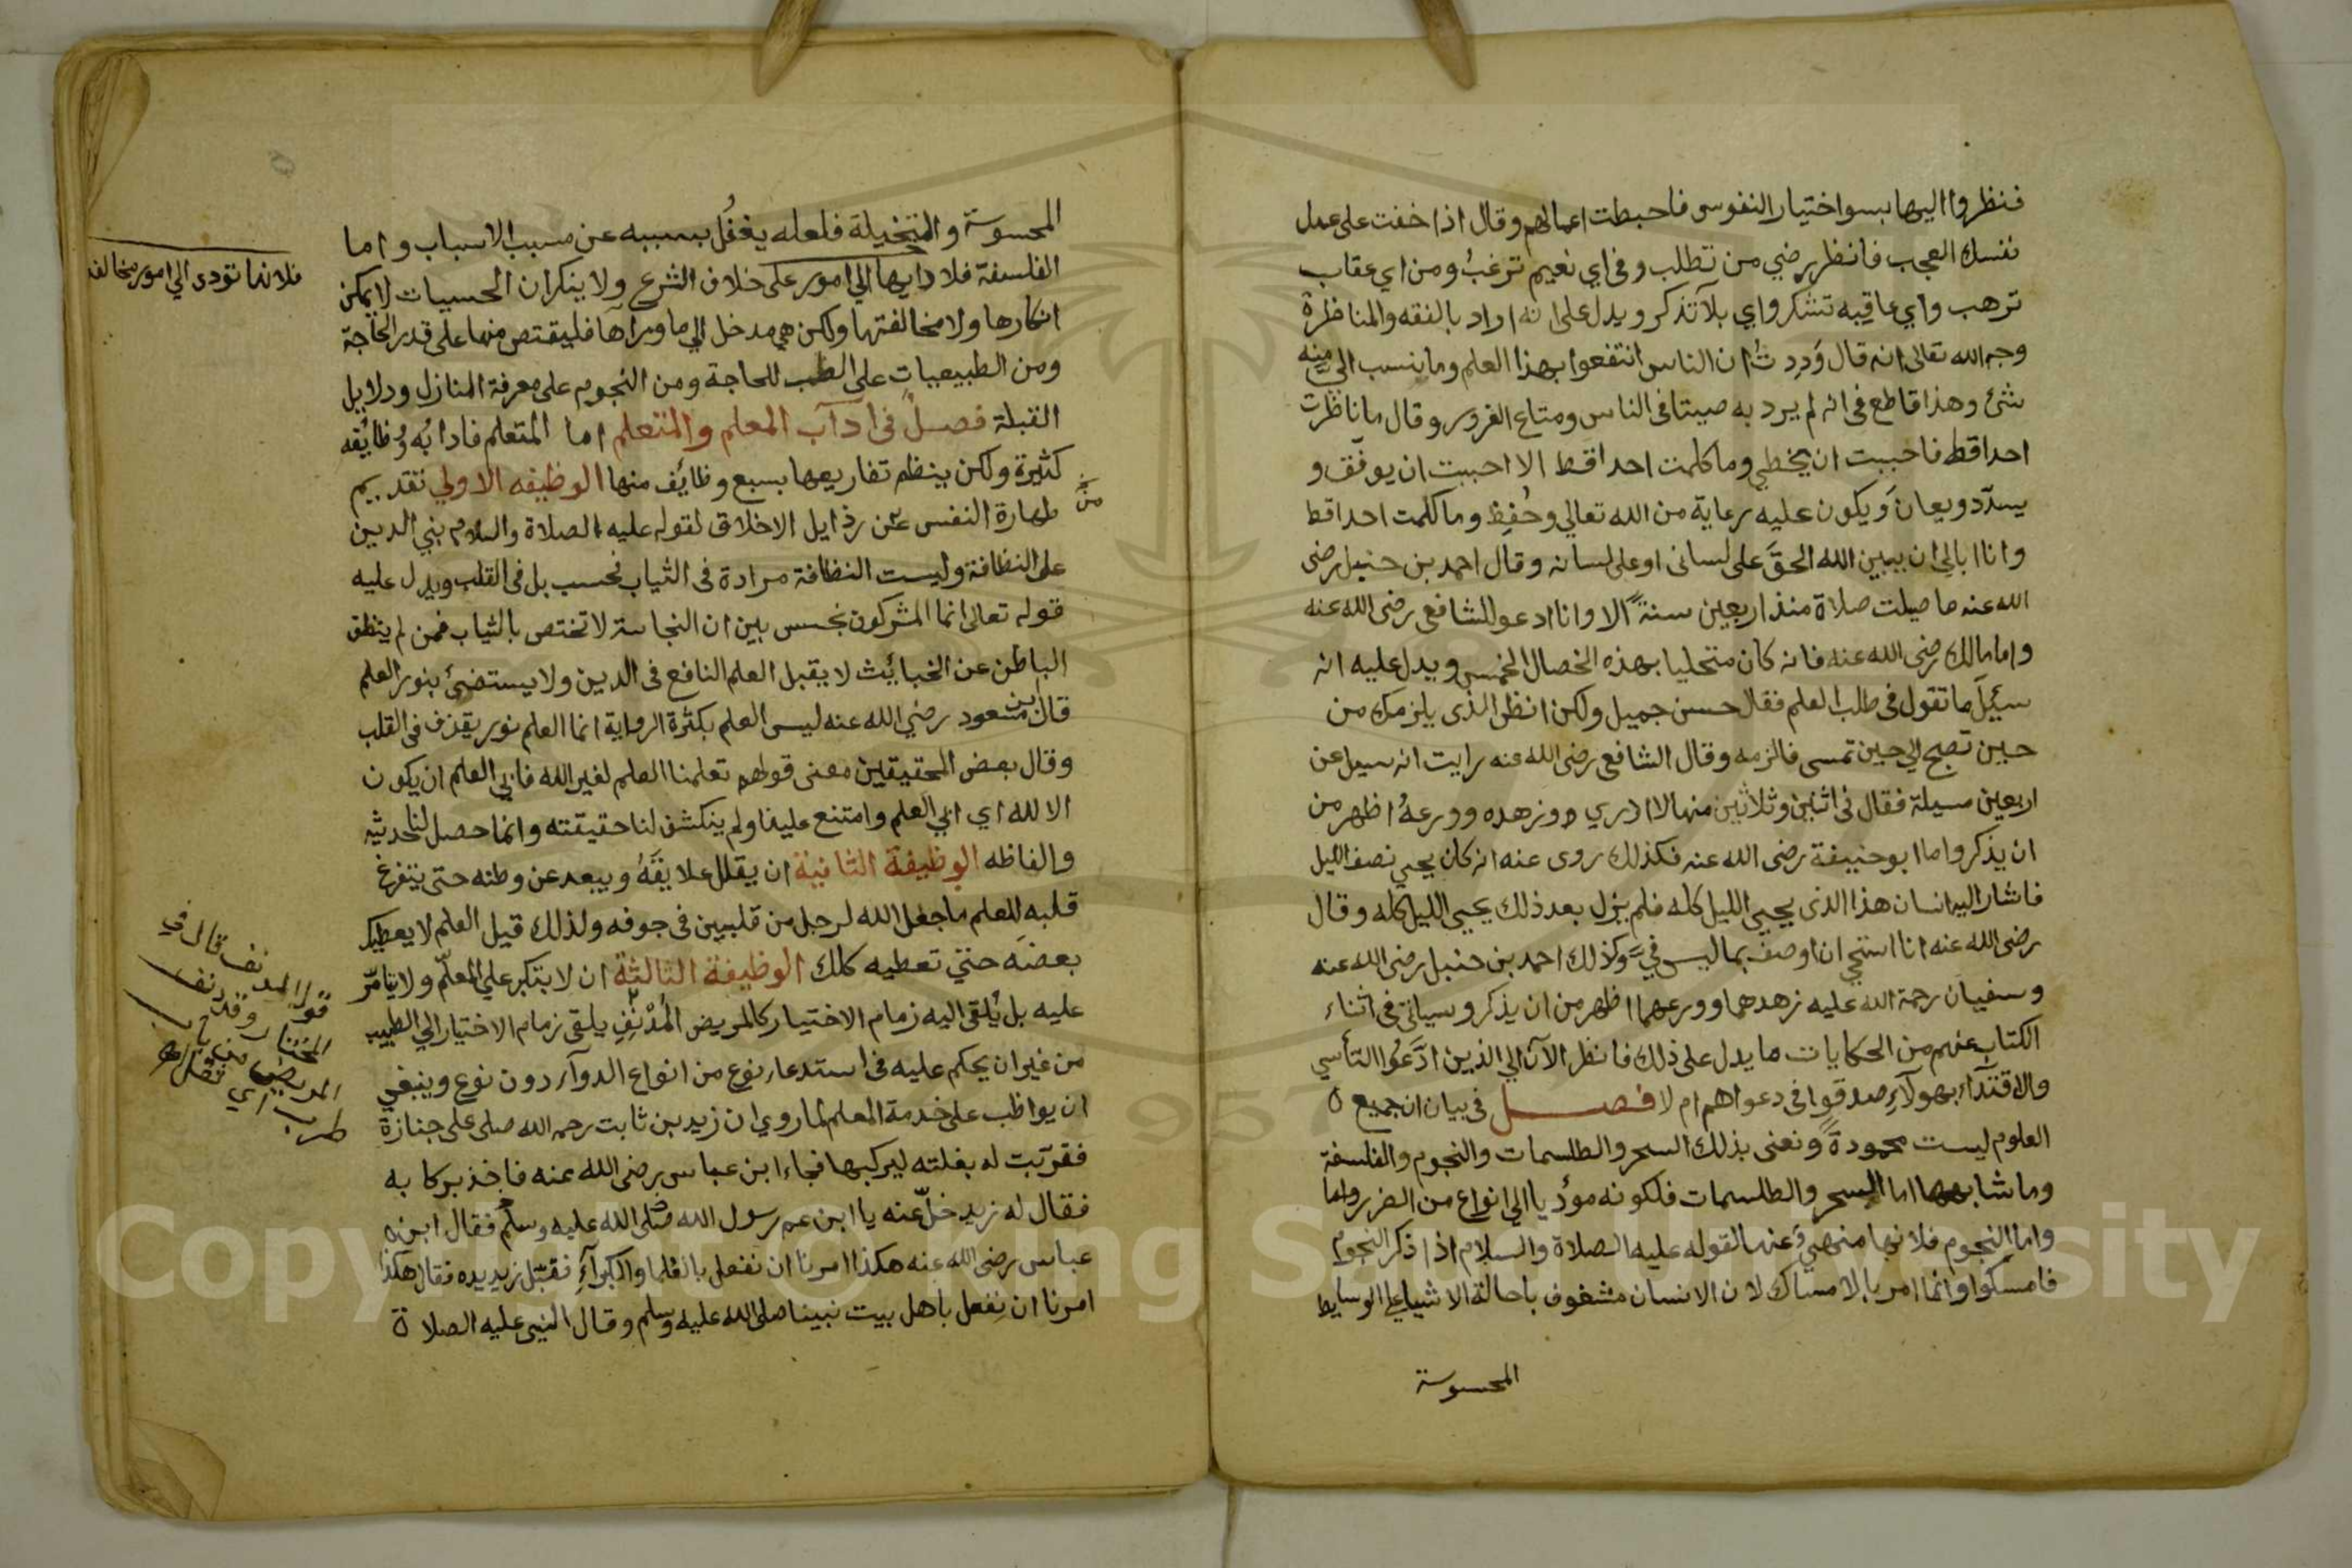 فنظروا اليها بسوا ختيار النفوس فاحبطت اعمالهم وقال اذا خفت على عمل
نفسك العجب فانظر رضي من تطلب وفى اي نعيم ترغب ومن اي عقاب
ترهب واي عاقبه تشكر واي بلا تذكر ويدل على انه اراد بالفقه والمناظرة
وجه الله تعالى انه قال وددت ان الناس انتفعوا بهذا العلم وما ينسب الي منه
شئ وهذا قاطع فى انه لم يرد به صيتا فى الناس ومتاع الغرور وقال ما ناظرت
احدا قط فاحببت ان يخطي وما كلمت احدا قط الا احببت ان يوفق و
يسدد ويعان ويكون عليه رعاية من الله تعالي وحفظ وما كلمت احدا قط
وانا ابالي ان يبين الله الحق على لسانى او على لسانه وقال احمد بن حنبل رضى
الله عنه ما صليت صلاة منذ اربعين سنة الا وانا ادعو للشافعي رضى الله عنه
واما مالك رضى الله عنه فانه كان متحليا بهذه الخصال الخمس ويدل عليه انه
سئيل ما تقول فى طلب العلم فقال حسن جميل ولكن انظر الذى يلزمك من
حين تصبح الي حين تمسى فالزمه وقال الشافعي رضى الله عنه رايت انه سيل عن
اربعين مسيلة فقال فى اثنين وثلاثين منها لا ادري وزهده وورعه اظهر من
ان يذكر واما ابو حنيفة رضى الله عنه فكذلك روى عنه انه كان يحيي نصف الليل
فاشار اليه انسان هذا الذى يحيي الليل كله فلم يزل بعد ذلك يحيي الليل كله وقال
رضى الله عنه انا استحي ان اوصف بما ليس في وكذلك احمد بن حنبل رضى الله عنه
وسفيان رحمة الله عليه زهدهما وورعهما اظهر من ان يذكر وسياتى فى اثناء
الكتاب عنهم من الحكايات ما يدل على ذلك فانظر الآن الي الذين ادعوا التأسي
والاقتداء بهولآء صدقوا فى دعواهم ام لا فصل فى بيان ان جميع ه
العلوم ليست محمودة ونعنى بذلك السحر والطلسمات والنجوم والفلسفة
وما شابهها اما السحر والطلسمات فلكونه موديا الي انواع من الضرر واما
واما النجوم فلانها منهي عنها لقوله عليه الصلاة والسلام اذا ذكر النجوم
فامسكوا وانما امر بالامساك لان الانسان مشغوف باحالة الاشيا على الوسايط
المحسوسة
المحسوسة والمتخيلة فلعله يغفل بسببه عن مسبب الاسباب واما
الفلسفة فلادايها الي امور على خلاف الشرع ولا ينكر ان الحسيات لا يمكن
انكارها ولا مخالفتها ولكن هي مدخل الي ما ورآها فليقتص منها على قدر الحاجة
ومن الطبيعيات على الطب للحاجة ومن النجوم على معرفة المنازل ودلايل
القبلة فصل فى اداب المعلم والمتعلم اما المتعلم فادابه وظايفه
كثيرة ولكن ينظم تفاريعها بسبع وظائف منها الوظيفه الاولي تقديم
طهارة النفس عن رذايل الاخلاق لقوله عليه الصلاة والسلام بني الدين
على النظافة وليست النظافة مرادة فى الثياب فحسب بل فى القلب ويدل عليه
قوله تعالى انما المشركون نجس بين ان النجاسة لا تختص بالثياب فمن لم ينظف
الباطن عن الخبائث لا يقبل العلم النافع فى الدين ولا يستضئ بنور العلم
قال ابن مسعود رضي الله عنه ليس العلم بكثرة الرواية انما العلم نور يقذف فى القلب
وقال بعض المحقيقين معنى قولهم تعلمنا العلم لغير الله فابي العلم ان يكون
الا لله اي ابي العلم وامتنع علينا ولم ينكشف لنا حقيقته وانما حصل لنا حديثه
والفاظه الوظيفة الثانية ان يقلل علايقه ويبعد عن وطنه حتى يتفرغ
قلبه للعلم ما جعل الله لرجل من قلبين فى جوفه ولذلك قيل العلم لا يعطيك
بعضه حتي تعطيه كلك الوظيفة الثالثة ان لا يتكبر علي المعلم ولا يتامر
عليه بل يلقى اليه زمام الاختيار كالمريض المدنف يلقى زمام الاختيار الي الطبيب
من غير ان يحكم عليه فى استدعاء نوع من انواع الدوآء دون نوع وينبغي
ان يواظب على خدمة المعلم لما روي ان زيد بن ثابت رحمه الله صلى على جنازة
فقربت له بغلته ليركبها فجاء ابن عباس رضى الله عنه فاخذ بركابه
فقال له زيد خل عنه يا ابن عم رسول الله صلى الله عليه وسلم فقال ابن ه
عباس رضى الله عنه هكذا امرنا ان نفعل بالعلما والكبرآء فقبل زيد يده فقال هكذا
امرنا ان نفعل باهل بيت نبينا صلى الله عليه وسلم وقال النبي عليه الصلاة
فلانها تودى الي امور مخالفه
من
قوله المدنف قال في
المختار وقد دنف
المريض من باب
طرب اي ثقل اهـ
Copyright © King Saud University
957